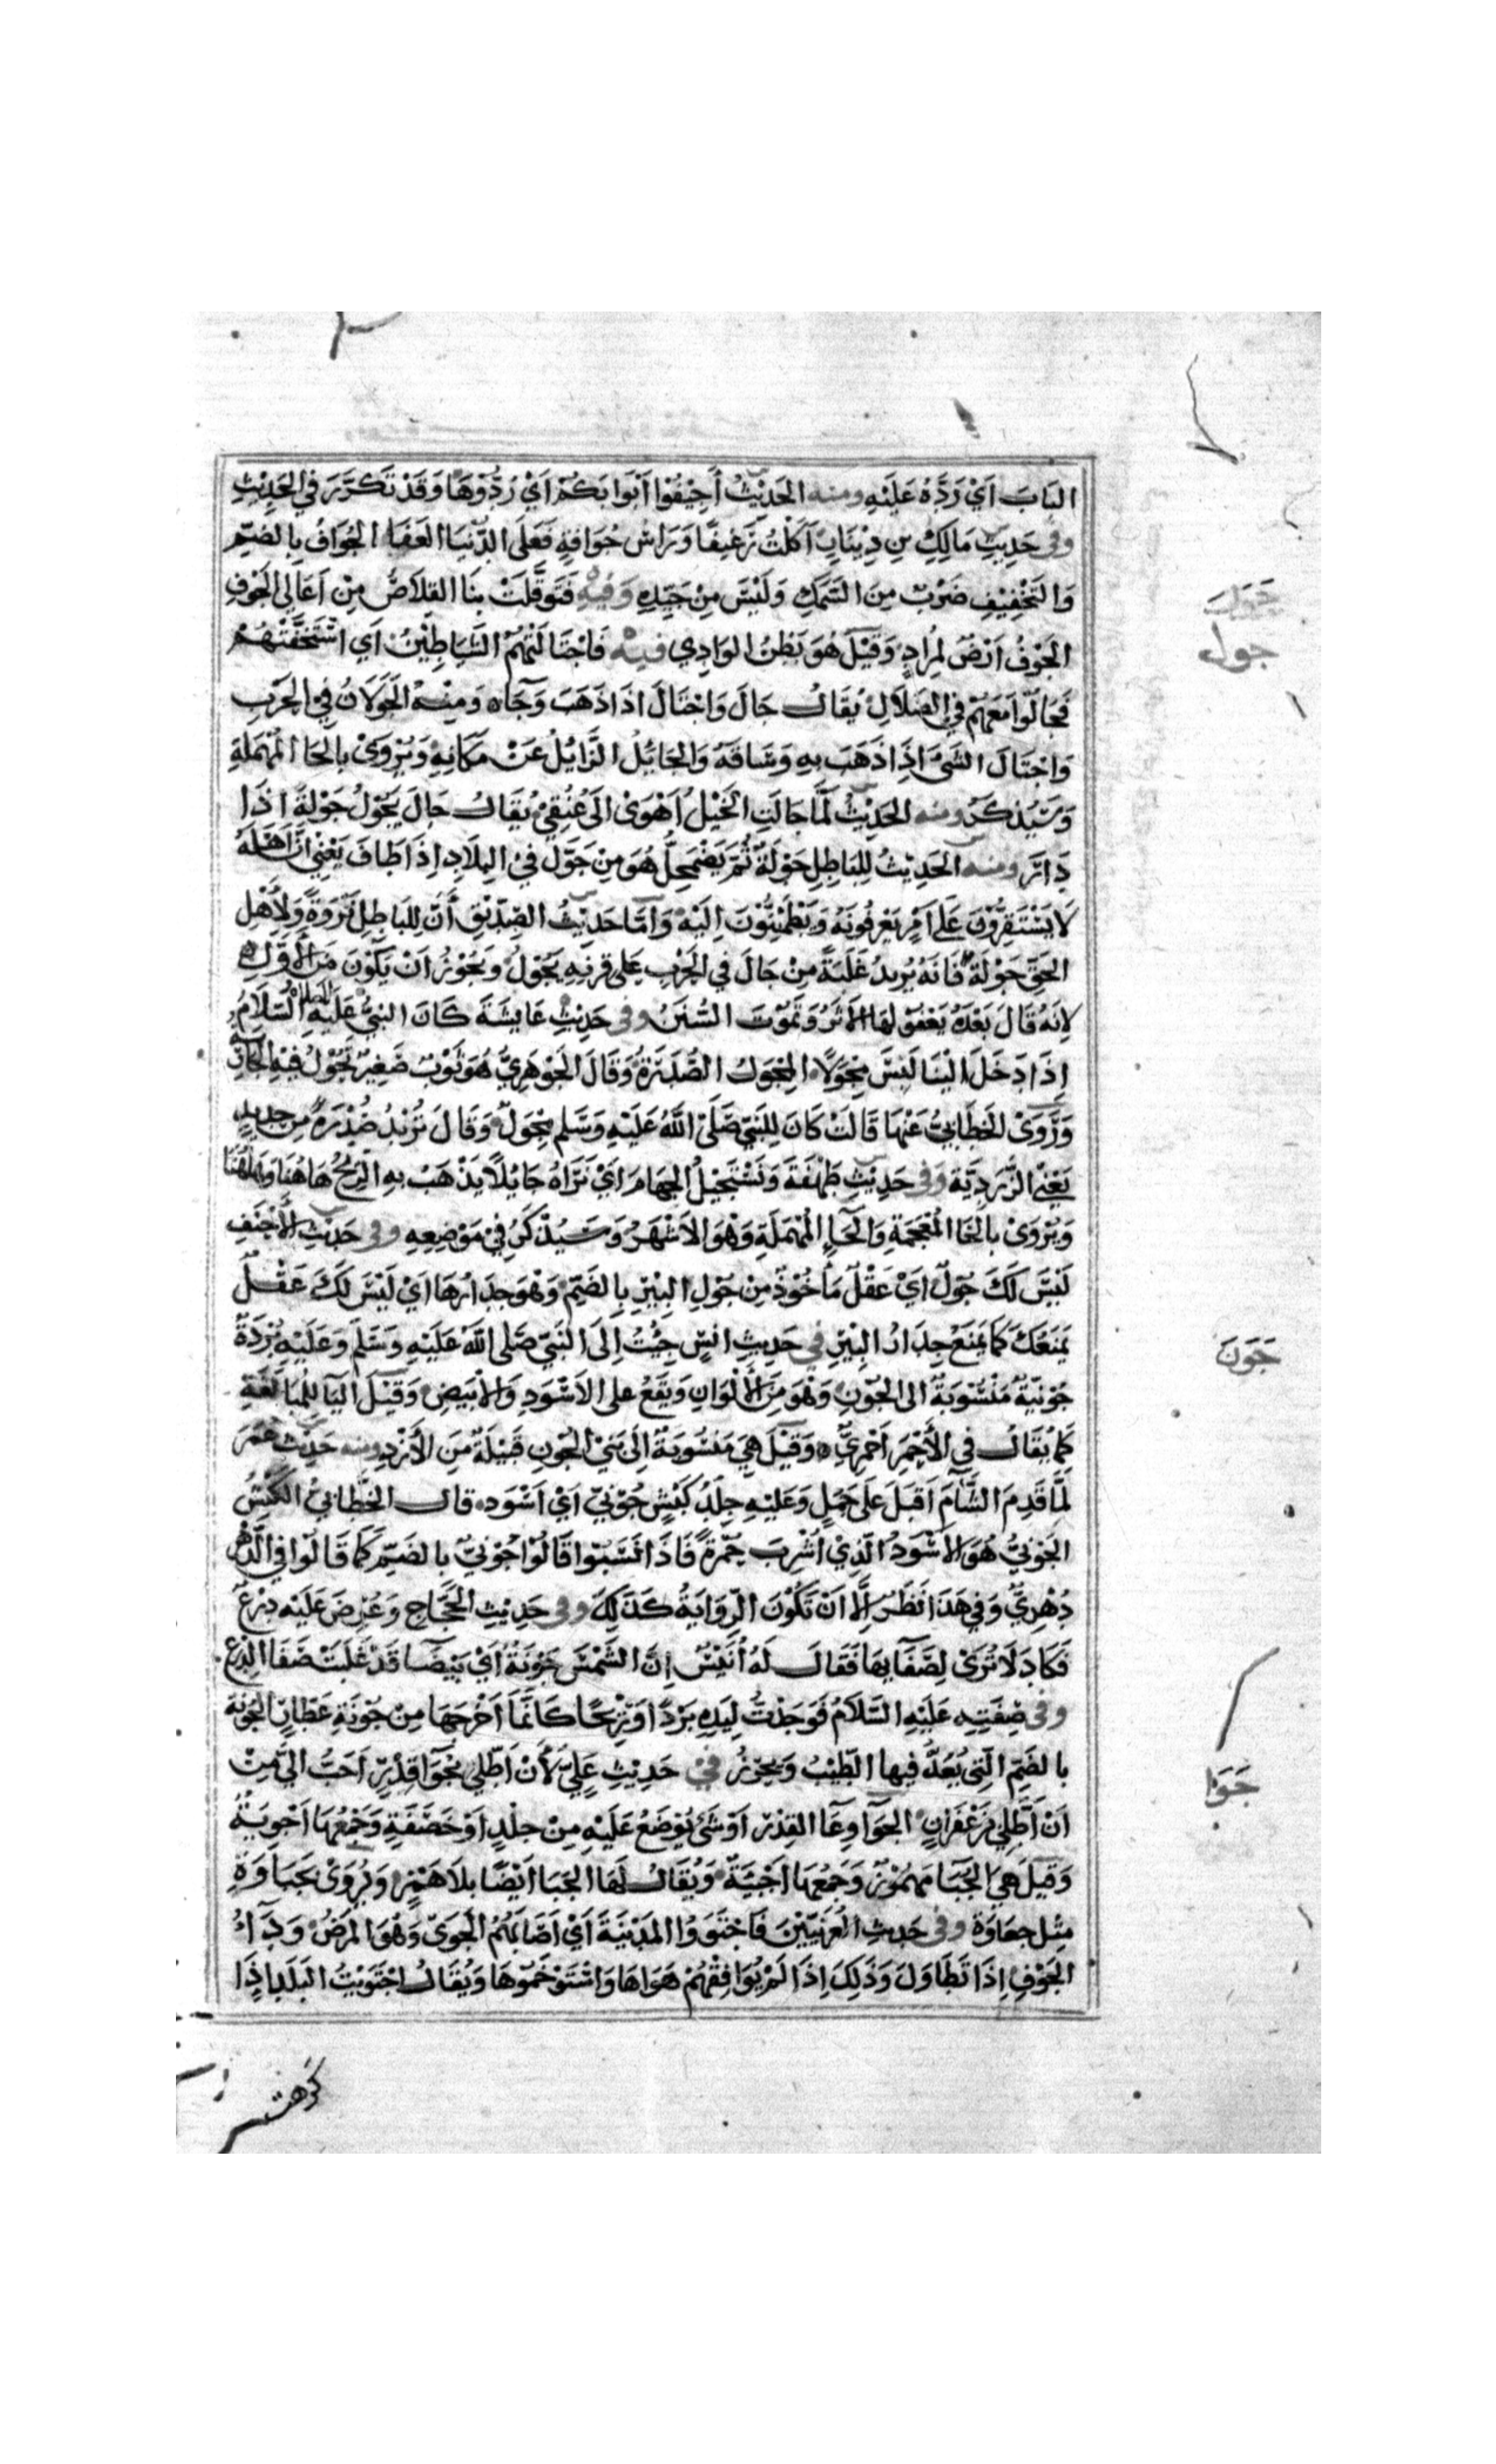 الباب اي رده عليه ومنه الحديث أجيفوا ابوابكم اي ردوها وقد تكرر في الحديث
وفي حديث مالك بن دينار اكلت رغيفا وراس جوافة فعلى الدنيا العفا الجواف بالضم
والتخفيف ضرب من السمك وليس من جيده وفيه فتوقلت بنا القلاص من اعالي الجوف
الجوف ارض لمراد وقيل هو بطن الوادي فيه فاجتالتهم الشياطين اي استخفتهم
فجالوا معهم في الضلال يقال جال واجتال اذا ذهب وجاه ومنه الجولان في الحرب
واجتال الشئ اذا ذهب به وساقه والجايل الزايل عن مكانه ويروى بالحا المهملة
وسيذكر ومنه الحديث لما جالت الخيل اهوى الى عنقي يقال جال يجول جولة اذا
دار ومنه الحديث للباطل جولة ثم يضمحل هو من جول في البلاد اذا طاف يعني ان اهله
لا يستقرون على امر يعرفونه ويطمئنون اليه واما حديث الصديق أن للباطل نزوة ولأهل
الحق جولة فانه يريد غلبة من جال في الحرب على قرنه يجول ويجوز ان يكون من الأول
لانه قال بعده يعفو لها الأثر وتموت السنن وفي حديث عايشة كان النبي عليه الصلاة السلام
اذا دخل الينا لبس مجولا المجول الصدرة وقال الجوهري هو ثوب صغير تجول فيه الجارية
وروى الخطابي عنها قالت كان للنبي صلى الله عليه وسلم مجول وقال تريد صدرة من حديد
يعني الزردية وفي حديث طهفة ونستجيل الجهام اي نراه جايلا يذهب به الريح هاهنا وهاهنا
ويروى بالخا المعجمة والحاء المهملة وهو الاشهر وسيذكر في موضعه وفي حديث الأحنف
ليس لك جول اي عقل مأخوذ من جول البير بالضم وهو جدارها اي ليس لك عقل
يمنعك كما يمنع جدار البير في حديث انس جئت إلى النبي صلى الله عليه وسلم وعليه بردة
جونية منسوبة الى الجون وهو من الألوان ويقع على الاسود والأبيض وقيل اليا للمبالغة
كما يقال في الأحمر احمري وقيل هي منسوبة إلى بني الجون قبيلة من الأزد ومنه حديث عمر
لما قدم الشام اقبل على جمل وعليه جلد كبش جوني اي اسود قال الخطابي الكبش
الجوني هو الأسود الذي أشرب حمرة فاذا نسبوا قالوا جوني بالضم كما قالوا في الدهر
دهري وفي هذا نظر إلا ان تكون الرواية كذلك وفي حديث الحجاج وعرض عليه درع
فكاد لا ترى لصفآيها فقال له أنيس إن الشمس جونة اي بيضا قد غلبت صفا الدرع
وفي صفته عليه السلام فوجدت ليده بردا وريحا كانما اخرجها من جونة عطار الجونة
بالضم التي يعد فيها الطيب ويحرز في حديث علي لأن اطلي بجوا قدر احب الي من
ان اطلي بزعفران الجوآ وعآ القدر او شئ يوضع عليه من جلد او خصفة وجمعها اجوية
وقيل هي الجيا مهموز وجمعها اجئية ويقال لها الجيا ايضا بلا همز ويروى بجياوة
مثل جعاوة وفي حديث العرنيين فاجتووا المدينة اي اصابهم الجوى وهو المرض ودآء
الجوف اذا تطاول وذلك اذا لم يوافقهم هواها واستوخموها ويقال اجتويت البلد اذا
جول
جون
جوا
كرهت